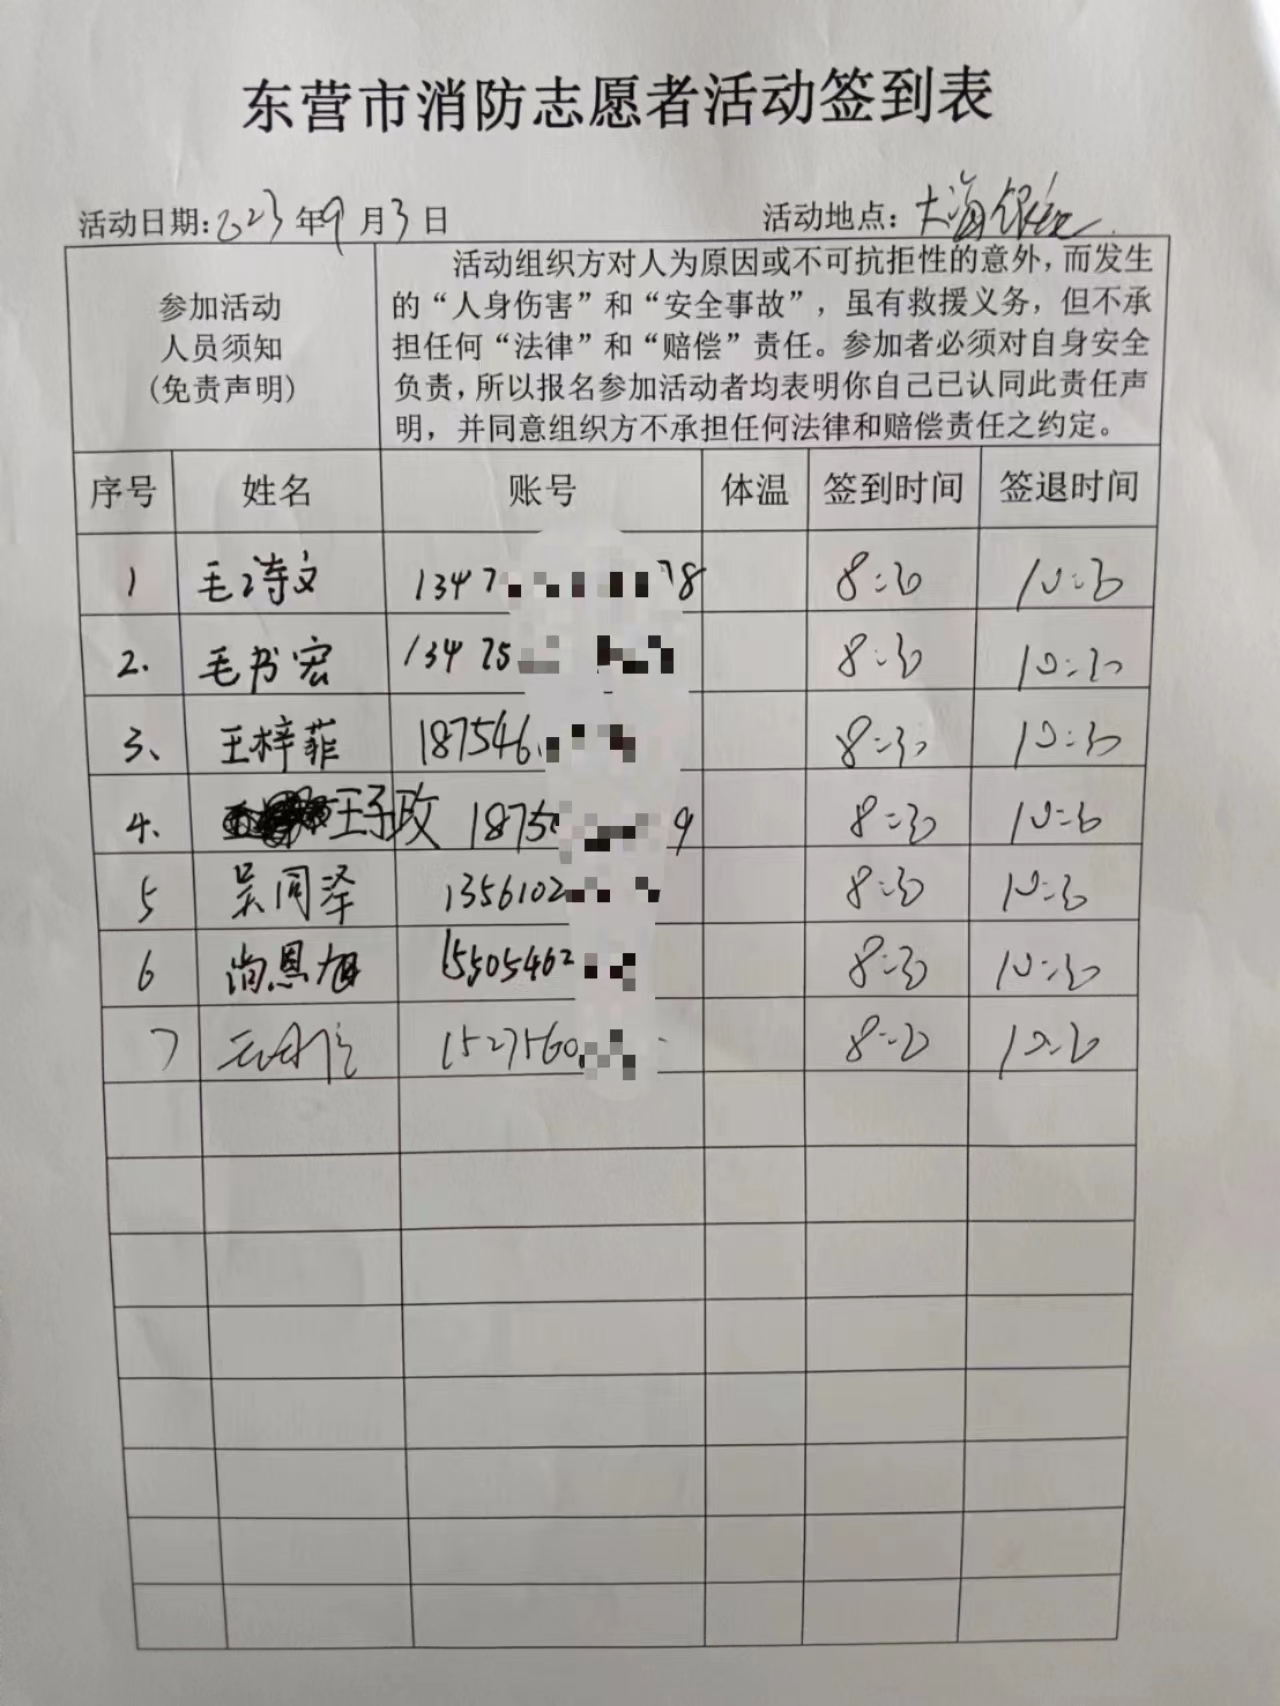 东营市消防志愿者活动签到表
活动日期:2023年9月3日 活动地点:大海
参加活动
人员须知
(免责声明)
活动组织方对人为原因或不可抗拒性的意外,而发生
的“人身伤害”和“安全事故”,虽有救援义务,但不承
担任何“法律”和“赔偿”责任。参加者必须对自身安全
负责,所以报名参加活动者均表明你自己已认同此责任声
明,并同意组织方不承担任何法律和赔偿责任之约定。
序号 姓名 账号 体温 签到时间 签退时间
1 毛诗文 1347 78 8:30 10:30
2. 毛书宏 13475 8:30 10:30
3、 王梓菲 187546 8:30 10:30
4. 王子政 1875 9 8:30 10:30
5 吴同泽 1356102 8:30 10:30
6 尚恩旭 15505462 8:30 10:30
7 1527560 8:30 10:30